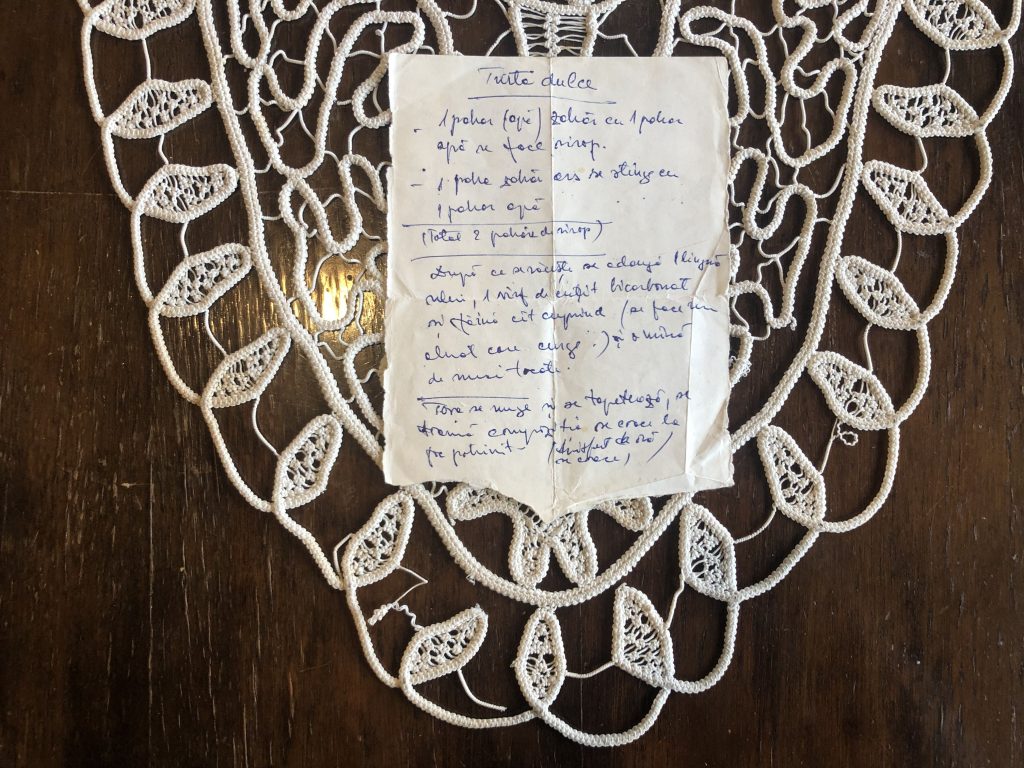 Turtă dulce
- 1 pahar (apă) zahăr cu 1 pahar
apă se face sirop.
- 1 paha zahăr ars se stinge cu
1 pahar apă
(Total 2 pahare de sirop)
După ce se răcește se adaugă 1 lingură
ulei, 1 vârf de cuțit bicarbonat
și făină cît cuprind (se face un
aluat care curge.) și o mînă
de nuci tocate.
Tava se unge și se tapetează, se
toarnă compoziția se coace la
foc potrivit
se coace)